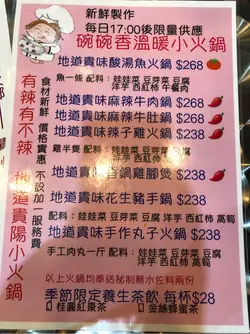 新鮮製作
每日17:00後限量供應
碗碗香溫暖小火鍋
地道貴味酸湯魚火鍋 $268
魚一條 配料：娃娃菜 豆芽菜 豆腐
洋芋 西紅柿 午餐肉
地道貴味麻辣牛肉鍋 $268
地道貴味麻辣牛肚鍋 $288
地道貴味辣子雞火鍋 $238
雞半隻 配料：娃娃菜 豆芽菜 豆腐
洋芋 西紅柿 蒿筍
地道貴味香鍋雞腳煲 $238
地道貴味花生豬手鍋 $238
配料：娃娃菜 豆芽菜 豆腐
洋芋 西紅柿 蒿筍
地道貴味手作丸子火鍋 $238
手工肉丸一斤 配料：娃娃菜 豆芽菜 豆腐
洋芋 西紅柿 蒿筍
以上火鍋均奉送秘制蘸水佐料兩份
季節限定養生茶飲 每杯$28
桂圓紅棗茶
金絲蜂蜜茶
有辣有不辣 地道貴陽小火鍋
食材新鮮 價格實惠 不設加一服務費